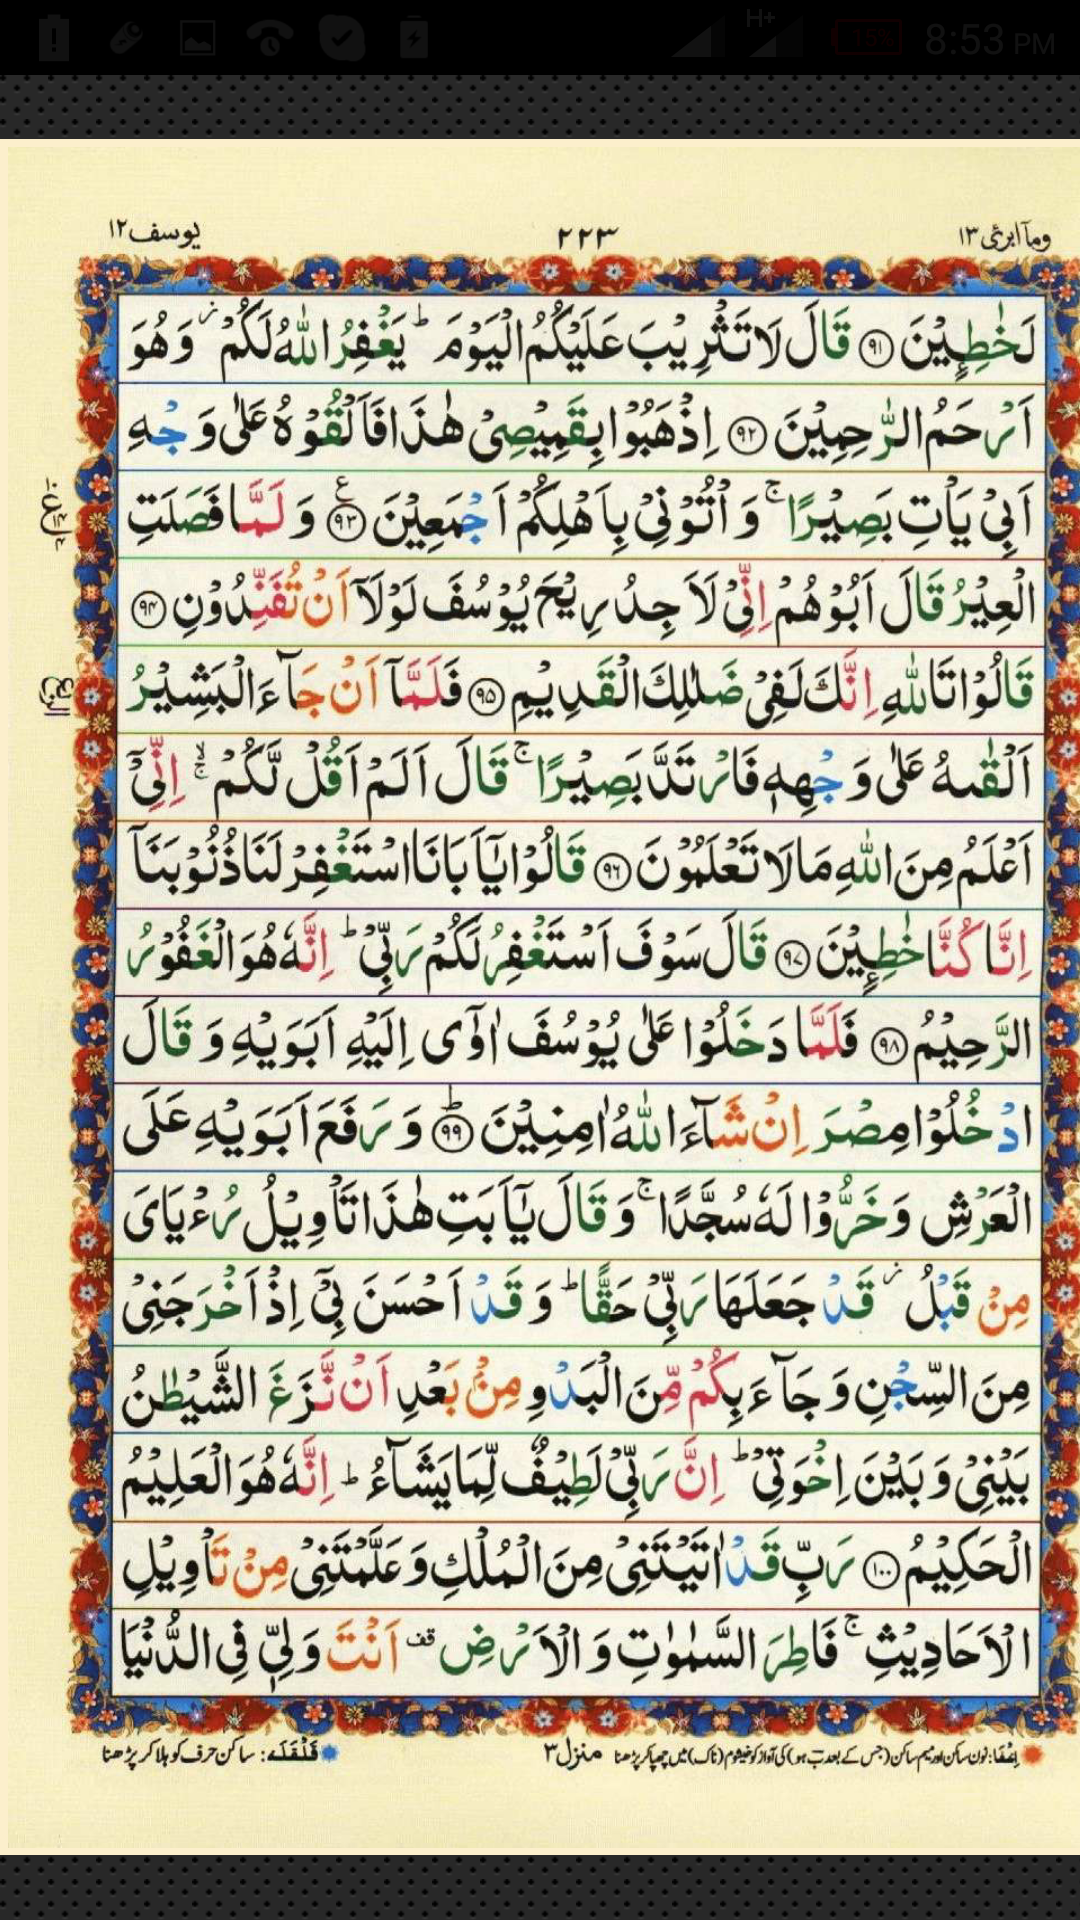 8:53 PM
H+
15%
ومآ ابرئ ١٣
٢٢٣
يوسف ١٢
لَخٰطِـِٕيْنَ ﴿۹۱﴾ قَالَ لَا تَثْرِيْبَ عَلَيْكُمُ الْيَوْمَ ؕ يَغْفِرُ اللّٰهُ لَكُمْ ؗ وَهُوَ
اَرْحَمُ الرّٰحِمِيْنَ ﴿۹۲﴾ اِذْهَبُوْا بِقَمِيْصِىْ هٰذَا فَاَلْقُوْهُ عَلٰى وَجْهِ
اَبِىْ يَاْتِ بَصِيْرًا ۚ وَاْتُوْنِىْ بِاَهْلِكُمْ اَجْمَعِيْنَ ﴿۹۳﴾ ع وَلَمَّا فَصَلَتِ
الْعِيْرُ قَالَ اَبُوْهُمْ اِنِّىْ لَاَجِدُ رِيْحَ يُوْسُفَ لَوْلَاۤ اَنْ تُفَنِّدُوْنِ ﴿۹۴﴾
قَالُوْا تَاللّٰهِ اِنَّكَ لَفِىْ ضَلٰلِكَ الْقَدِيْمِ ﴿۹۵﴾ فَلَمَّاۤ اَنْ جَآءَ الْبَشِيْرُ
اَلْقٰىهُ عَلٰى وَجْهِهٖ فَارْتَدَّ بَصِيْرًا ۚ قَالَ اَلَمْ اَقُلْ لَّكُمْ ۙۚ اِنِّىْۤ
اَعْلَمُ مِنَ اللّٰهِ مَا لَا تَعْلَمُوْنَ ﴿۹۶﴾ قَالُوْا يٰۤاَبَانَا اسْتَغْفِرْ لَنَا ذُنُوْبَنَاۤ
اِنَّا كُنَّا خٰطِـِٕيْنَ ﴿۹۷﴾ قَالَ سَوْفَ اَسْتَغْفِرُ لَكُمْ رَبِّىْ ؕ اِنَّهٗ هُوَ الْغَفُوْرُ
الرَّحِيْمُ ﴿۹۸﴾ فَلَمَّا دَخَلُوْا عَلٰى يُوْسُفَ اٰوٰٓى اِلَيْهِ اَبَوَيْهِ وَقَالَ
ادْخُلُوْا مِصْرَ اِنْ شَآءَ اللّٰهُ اٰمِنِيْنَ ﴿۹۹﴾ؕ وَرَفَعَ اَبَوَيْهِ عَلَى
الْعَرْشِ وَخَرُّوْا لَهٗ سُجَّدًا ۚ وَقَالَ يٰۤاَبَتِ هٰذَا تَاْوِيْلُ رُءْيَاىَ
مِنْ قَبْلُ ؗ قَدْ جَعَلَهَا رَبِّىْ حَقًّا ؕ وَقَدْ اَحْسَنَ بِىْۤ اِذْ اَخْرَجَنِىْ
مِنَ السِّجْنِ وَجَآءَ بِكُمْ مِّنَ الْبَدْوِ مِنْۢ بَعْدِ اَنْ نَّزَغَ الشَّيْطٰنُ
بَيْنِىْ وَبَيْنَ اِخْوَتِىْ ؕ اِنَّ رَبِّىْ لَطِيْفٌ لِّمَا يَشَآءُ ؕ اِنَّهٗ هُوَ الْعَلِيْمُ
الْحَكِيْمُ ﴿۱۰۰﴾ رَبِّ قَدْ اٰتَيْتَنِىْ مِنَ الْمُلْكِ وَعَلَّمْتَنِىْ مِنْ تَاْوِيْلِ
الْاَحَادِيْثِ ۚ فَاطِرَ السَّمٰوٰتِ وَالْاَرْضِ قف اَنْتَ وَلِىّٖ فِى الدُّنْيَا
اِخفَا: نون ساکن اور میم ساکن (جس کے بعد ب ہو) کی آواز کو خیشوم (ناک) میں چھپا کر پڑھنا
منزل ۳
قَلْقَلَہ: ساکن حرف کو ہلا کر پڑھنا